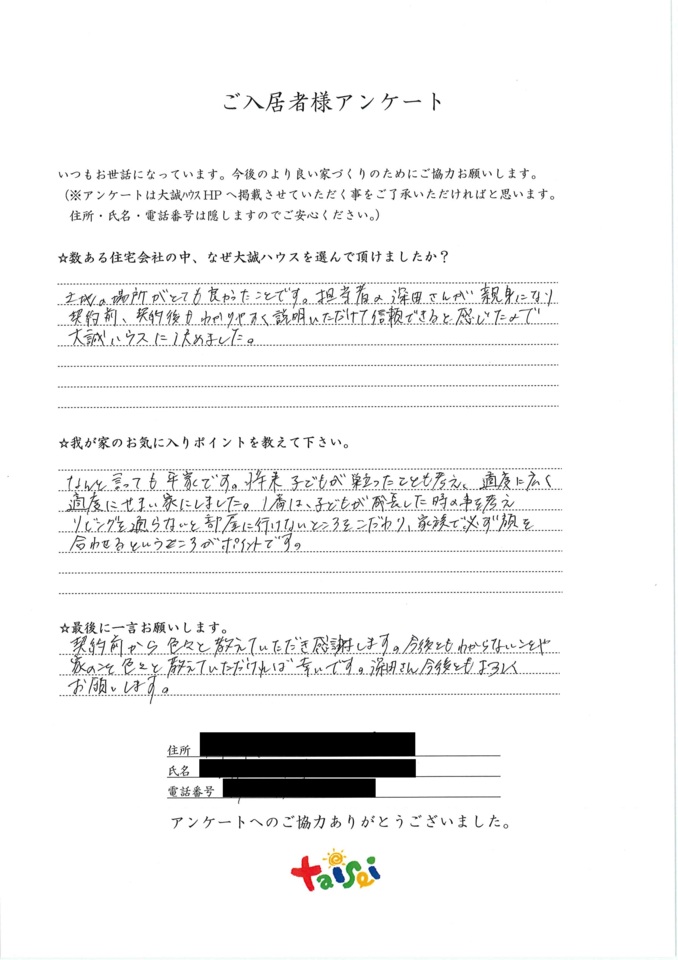 ご入居者様アンケート
いつもお世話になっています。今後のより良い家づくりのためにご協力お願いします。
(※アンケートは大誠ハウスHPへ掲載させていただく事をご了承いただければと思います。
住所・氏名・電話番号は隠しますのでご安心ください。)
☆数ある住宅会社の中、なぜ大誠ハウスを選んで頂けましたか？
土地の場所がとても良かったことです。担当者の深田さんが親身になり
契約前、契約後もわかりやすく説明いただけて信頼できると感じたので
大誠ハウスに決めました。
☆我が家のお気に入りポイントを教えて下さい。
なんと言っても平家です。将来子どもが巣立ったことも考え、適度に広く
適度にせまい家にしました。1番は、子どもが成長した時の事を考え
リビングを通らないと部屋に行けないところをこだわり、家族で必ず顔を
合わせるというところがポイントです。
☆最後に一言お願いします。
契約前から色々と教えていただき感謝します。今後ともわからないことや
家のこと色々と教えていただければ幸いです。深田さん今後ともよろしく
お願いします。
住所
氏名
電話番号
アンケートへのご協力ありがとうございました。
taisei